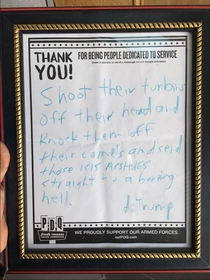 THANK YOU!
FOR BEING PEOPLE DEDICATED TO SERVICE
Shoot their turbins
off their head and
knock them off
their comels and send
those ISIS ASSHOLES
straight to a boxing
hell.
PDQ
WE PROUDLY SUPPORT OUR ARMED FORCES.